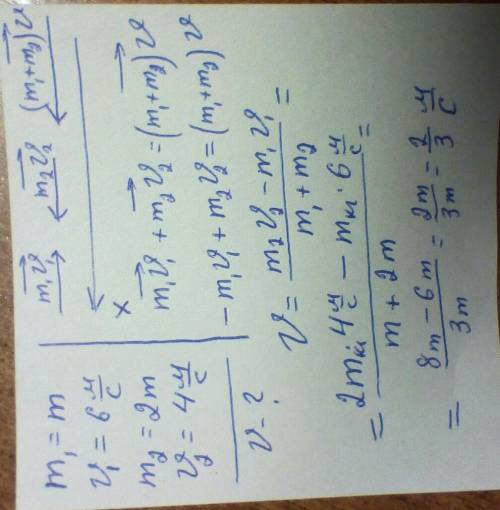 m₁ = m
v₁ = 6 м/с
m₂ = 2m
v₂ = 4 м/с
v - ?
m₁v₁→ m₂v₂→ (m₁+m₂)v→
x
m₁v₁→ + m₂v₂→ = (m₁+m₂)v→
- m₁v₁ + m₂v₂ = (m₁+m₂)v
v = (m₂v₂ - m₁v₁)/(m₁+m₂) =
= (2m кг · 4 м/с - m кг · 6 м/с)/(m + 2m) =
= (8m - 6m)/3m = 2m/3m = 2/3 м/с